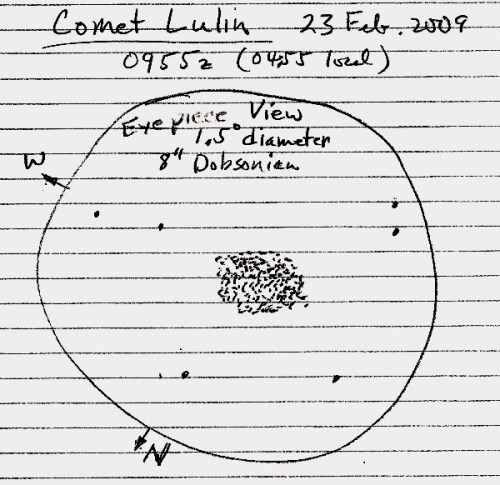 Comet Lulin 23 Feb. 2009
0955z (0455 local)
Eyepiece View
1.5° diameter
8" Dobsonian
W
N